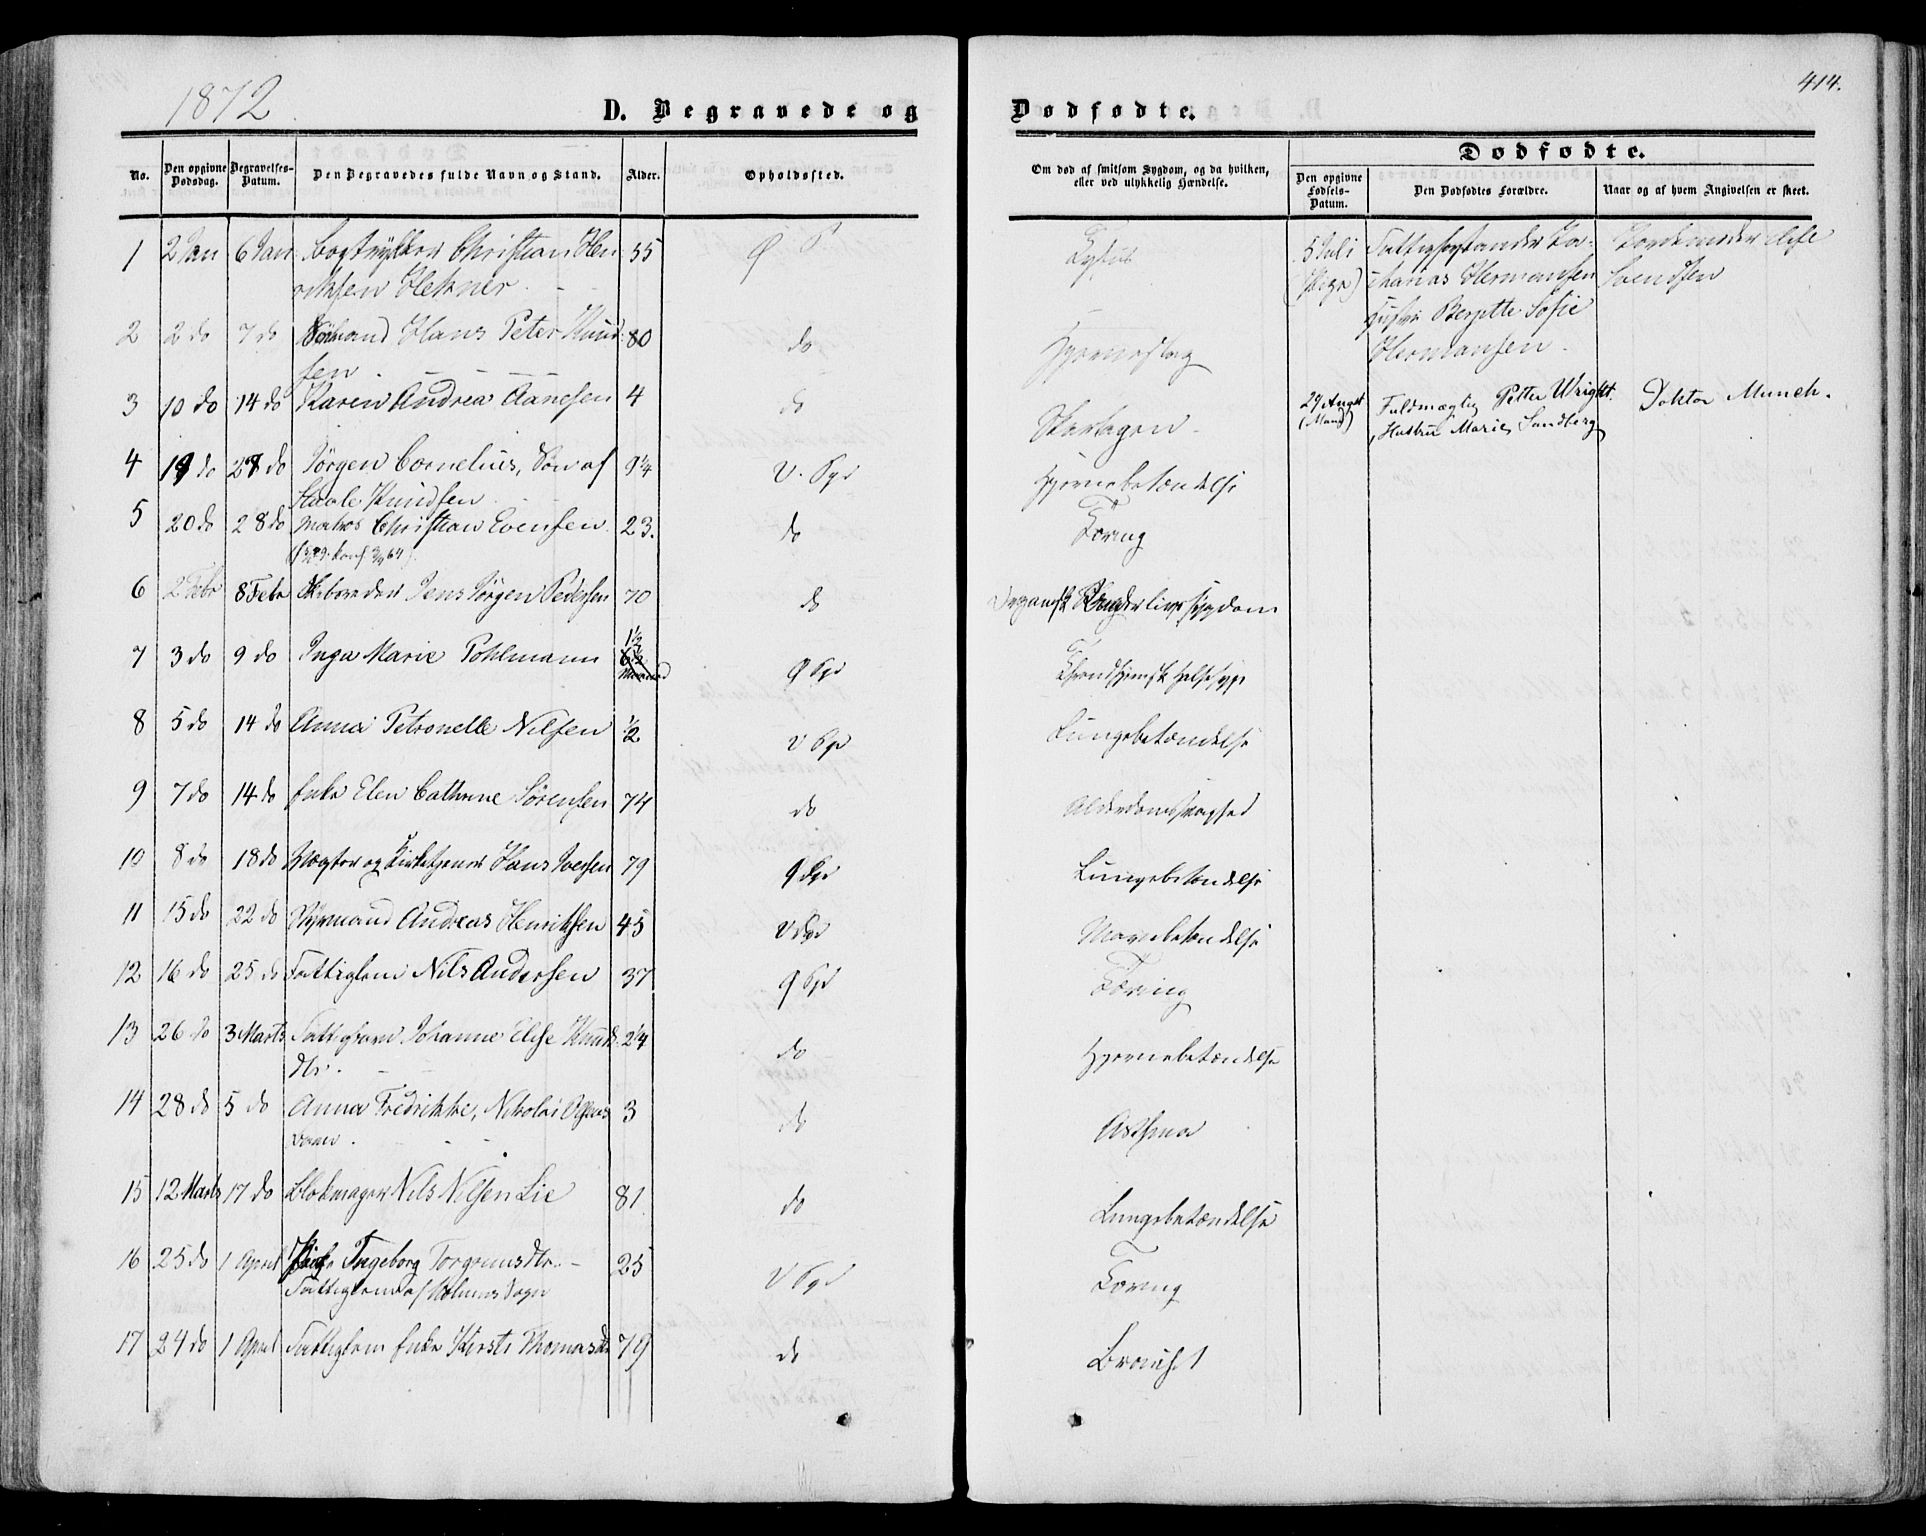 1872
414.
D. Begravede og
Dødfødte.
No.
Den opgivne Dødsdag.
Begravelses-Datum.
Den Begravedes fulde Navn og Stand.
Alder.
Opholdssted.
Om død af smitsom Sygdom, og da hvilken, eller ved ulykkelig Hændelse.
Dødfødte.
Den opgivne Fødsels-Datum.
Den Dødfødtes Forældre.
Naar og af hvem Angivelsen er skeet.
1 2 Jan 6 Jan Bogtrykker Christian Hen 55
riksen
2 2 do 7 do Hans Peter Knud 80 do Hjerneslag
sen
3 10 do 14 do Karen Andrea Aanesen 4 do Skarlagen
4 19 do 27 do Jørgen Cornelius, Søn af 9¼ V. Sgd Hjernebetændelse
Knudsen
5 20 do 28 do Matros Christian Evensen 23. do Tæring
6 2 Febr 8 Febr Jens Jørgen Pedersen 70 do Organisk Underlivssygdom
7 3 do 9 do Inga Marie Pohlmann 1½ Ø Sgd Throndhjemsk Halssyge
8 5 do 14 do Anna Petronelle Nilsen ½ V Sgd Lungebetændelse
9 7 do 14 do Enke Elen Cathrine Sørensen 74 do Alderdomssvaghed
10 8 do 18 do Vægter og Kirketjener Hans Iversen 79 Ø Sgd Lungebetændelse
11 15 do 22 do Styrmand Andreas Henriksen 45 V Sgd Mavebetændelse
12 16 do 25 do Fattiglem Nils Andersen 37 Ø Sgd Tæring
13 26 do 3 Marts Fattigbarn Johanne Elise Knuds 2¼ do Hjernebetændelse
dtr.
14 28 do 5 do Anna Fredrikke, Nikolai Olsens 3 do Asthma
Barn.
15 12 Marts 17 do Blokmager Nils Nilsen Lie 81 do Lungebetændelse
16 25 do 1 April Pige Ingeborg Torgrimsdtr. 25 V Sgd Tæring
Fattiglem af Holmens Sogn
17 24 do 1 April Fattiglem Enke Kirsti Thomasdtr 79 do
5 Juli
(Pige)
Fattigforstander Za-
charias Hermansen
Hustru Bergitte Sofie
Hermansen.
Jordemoder Elise
Svendsen
29 Augst
(Mand)
Fuldmægtig Petter Wright.
Hustru Marie Sundberg
Doktor Munch.